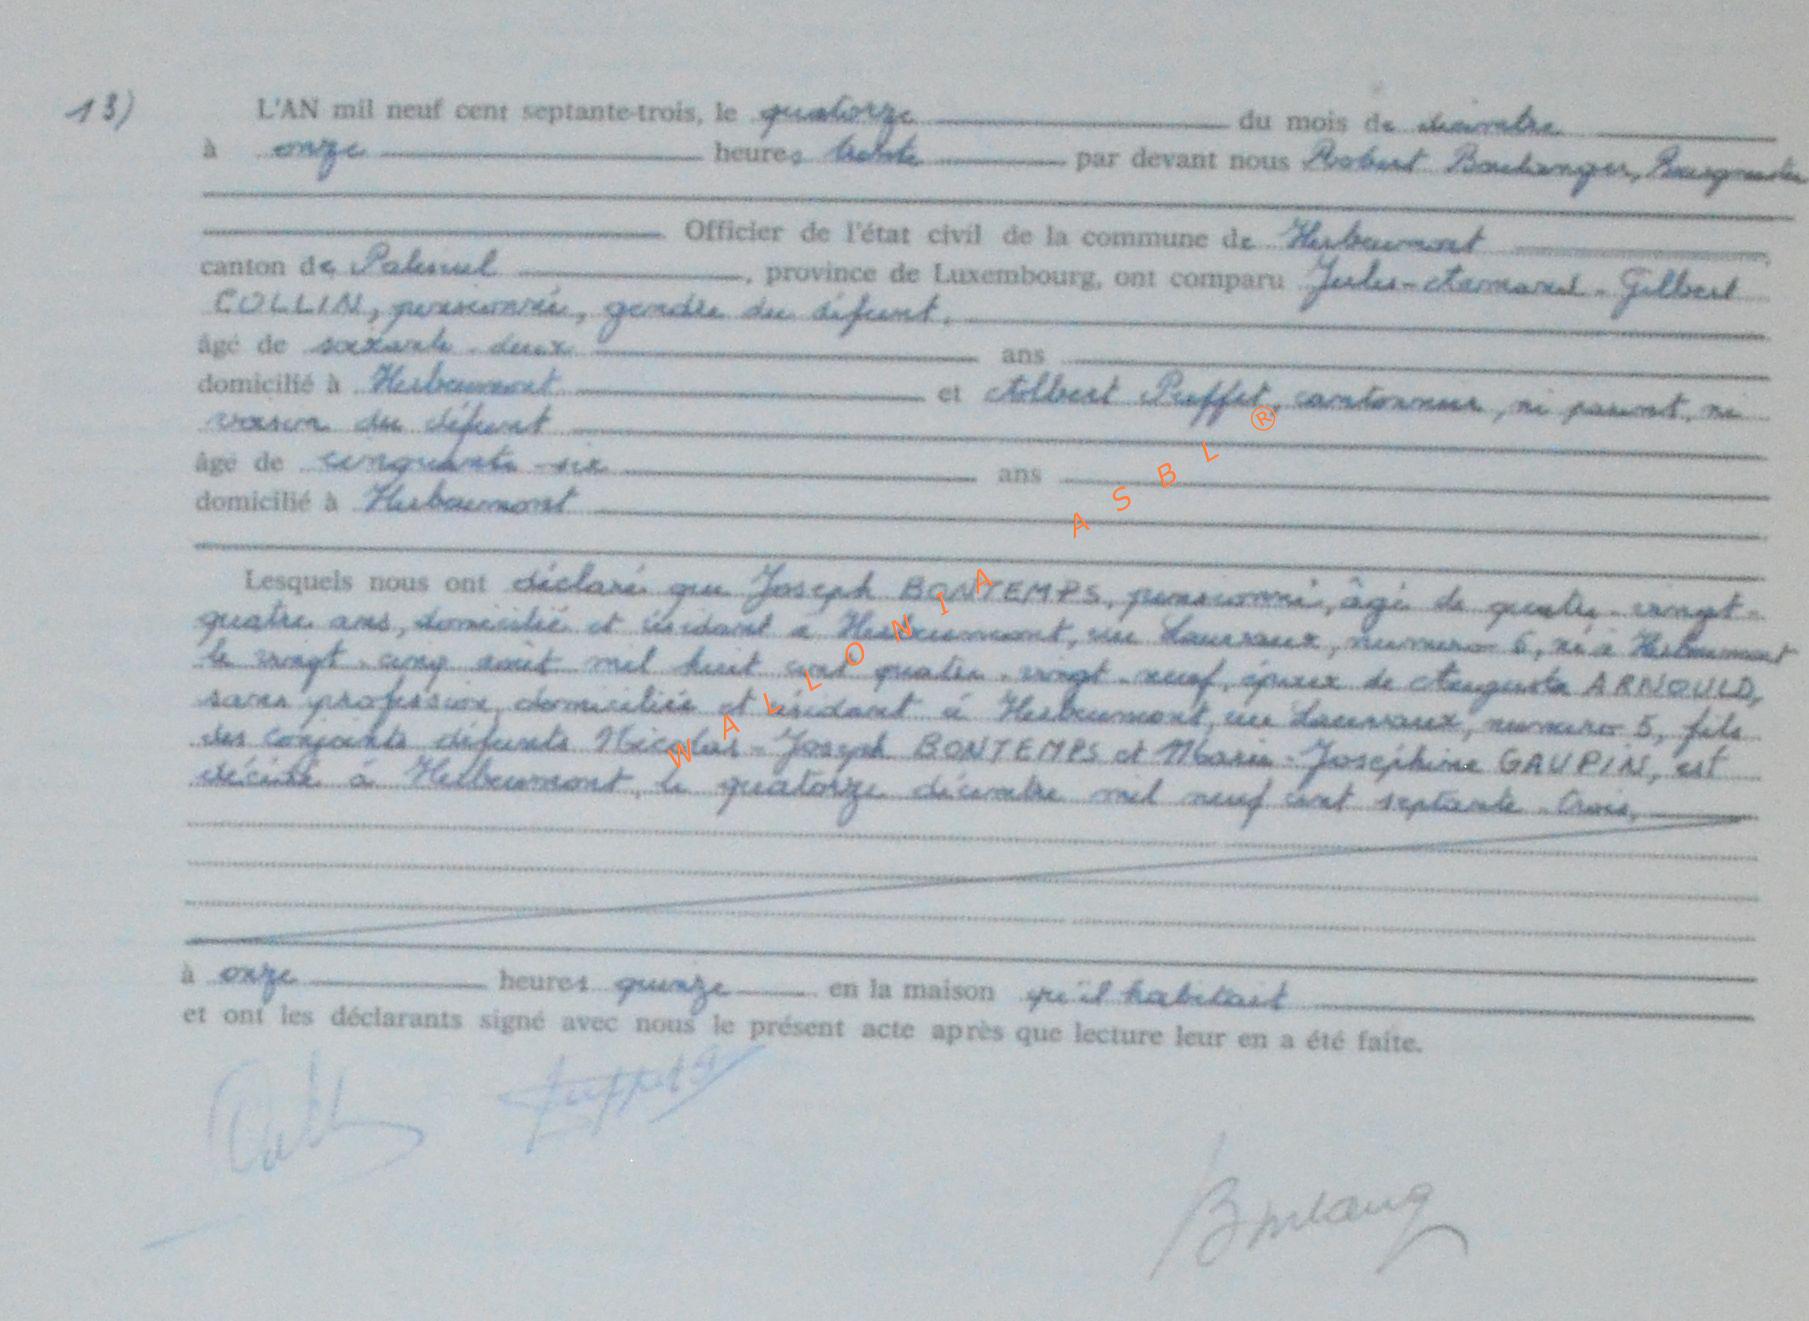 13)
L'AN mil neuf cent septante-trois, le quatorze du mois de décembre
à onze heures trente par devant nous Robert Boulanger, Bourgmestre
Officier de l'état civil de la commune de Herbeumont
canton de Paliseul, province de Luxembourg, ont comparu Jules-Armand-Gilbert
COLLIN, pensionné, gendre du défunt,
âgé de soixante-deux ans
domicilié à Herbeumont et Albert Puffet, cantonnier, ni parent, ni
voisin du défunt
âgé de cinquante-six ans
domicilié à Herbeumont
Lesquels nous ont déclaré que Joseph BONTEMPS, pensionné, âgé de quatre-vingt-
quatre ans, domicilié et résidant à Herbeumont, rue Lauvaux, numéro 6, né à Herbeumont
le vingt-cinq août mil huit cent quatre-vingt-neuf, époux de Augusta ARNOULD,
sans profession, domiciliée et résidant à Herbeumont, rue Lauvaux, numéro 5, fils
des conjoints défunts Nicolas-Joseph BONTEMPS et Marie-Joséphine GAUPIN, est
décédé à Herbeumont, le quatorze décembre mil neuf cent septante-trois,
à onze heures quinze en la maison qu'il habitait
et ont les déclarants signé avec nous le présent acte après que lecture leur en a été faite.
WALLONIA ASBL ®